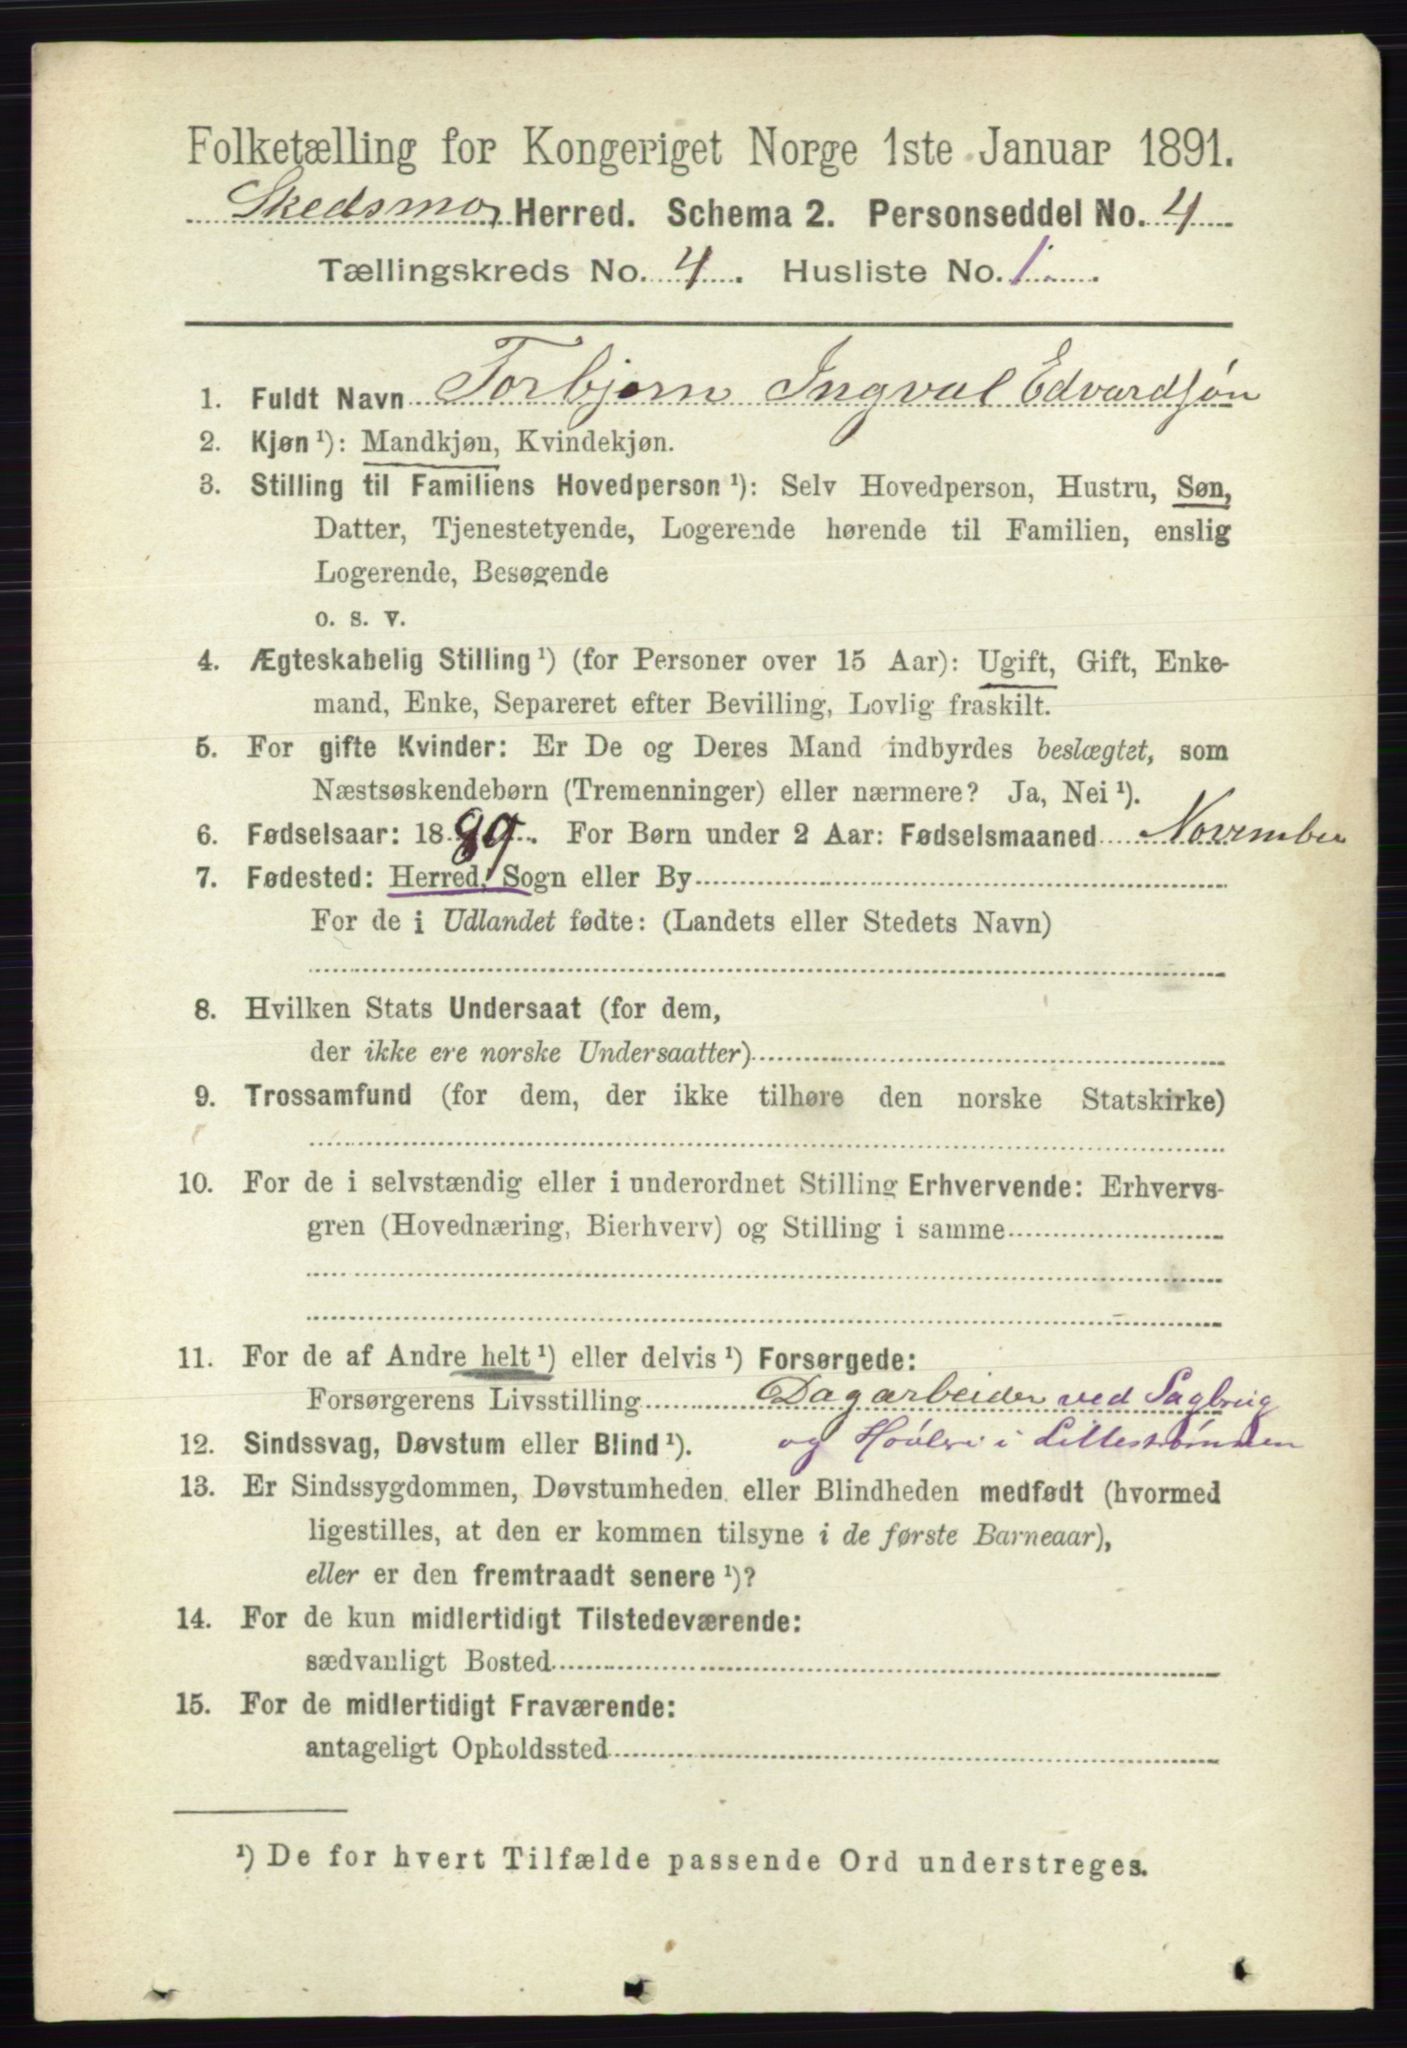 Folketælling for Kongeriget Norge 1ste Januar 1891.
Skedsmo, Herred. Schema 2. Personseddel No. 4
Tællingskreds No. 4. Husliste No. 1.
1. Fuldt Navn Torbjørn Ingval Edvardsøn
2. Kjøn ¹): Mandkjøn, Kvindekjøn.
3. Stilling til Familiens Hovedperson ¹): Selv Hovedperson, Hustru, Søn,
Datter, Tjenestetyende, Logerende hørende til Familien, enslig
Logerende, Besøgende
o. s. v.
4. Ægteskabelig Stilling ¹) (for Personer over 15 Aar): Ugift, Gift, Enke-
mand, Enke, Separeret efter Bevilling, Lovlig fraskilt.
5. For gifte Kvinder: Er De og Deres Mand indbyrdes beslægtet, som
Næstsøskendebørn (Tremenninger) eller nærmere? Ja, Nei ¹).
6. Fødselsaar: 1889. For Børn under 2 Aar: Fødselsmaaned November
7. Fødested: Herred, Sogn eller By
For de i Udlandet fødte: (Landets eller Stedets Navn)
8. Hvilken Stats Undersaat (for dem,
der ikke ere norske Undersaatter)
9. Trossamfund (for dem, der ikke tilhøre den norske Statskirke)
10. For de i selvstændig eller i underordnet Stilling Erhvervende: Erhvervs-
gren (Hovednæring, Bierhverv) og Stilling i samme
11. For de af Andre helt ¹) eller delvis ¹) Forsørgede:
Forsørgerens Livsstilling Dagarbeider ved Sagbrug
12. Sindssvag, Døvstum eller Blind ¹). og Høvleri i Lillestrømmen
13. Er Sindssygdommen, Døvstumheden eller Blindheden medfødt (hvormed
ligestilles, at den er kommen tilsyne i de første Barneaar),
eller er den fremtraadt senere ¹)?
14. For de kun midlertidigt Tilstedeværende:
sædvanligt Bosted
15. For de midlertidigt Fraværende:
antageligt Opholdssted
¹) De for hvert Tilfælde passende Ord understreges.